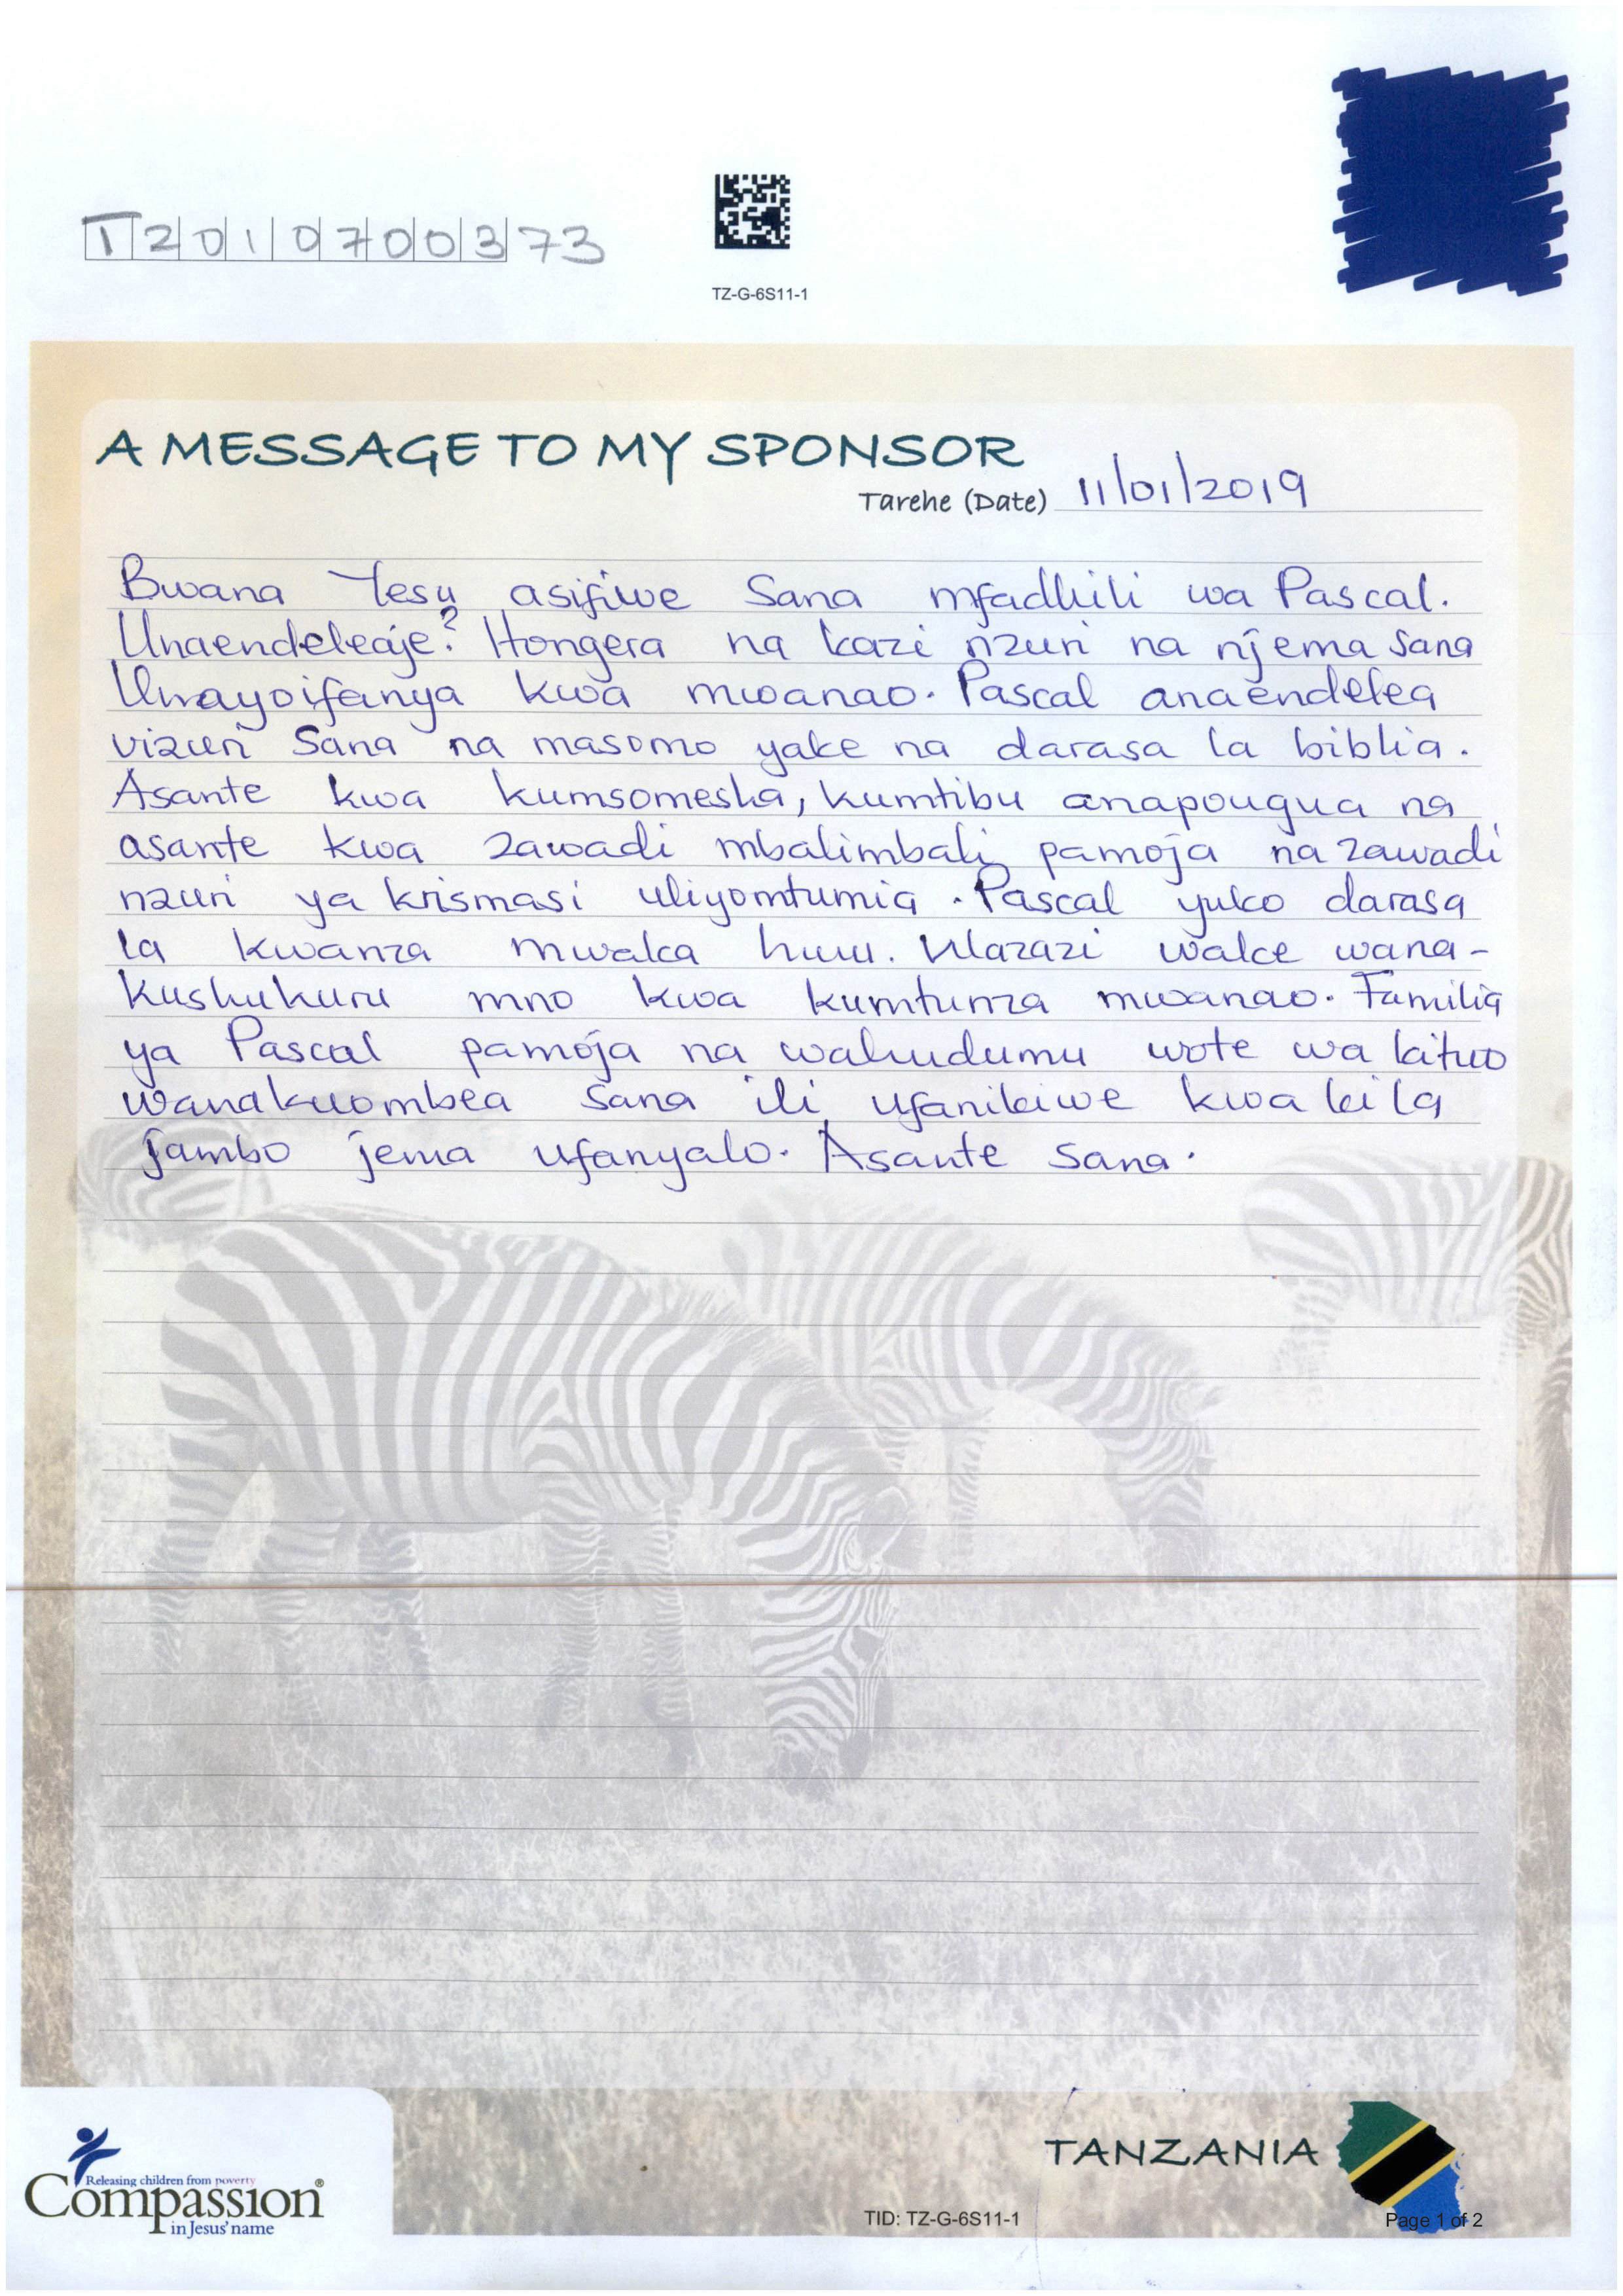 TZ010700373
TZ-G-6S11-1
A MESSAGE TO MY SPONSOR
Tarehe (Date) 11/01/2019
Bwana Yesu asifiwe Sana mfadhili wa Pascal.
Unaendeleaje? Hongera na kazi nzuri na njema sana
Unayoifanya kwa mwanao. Pascal anaendelea
vizuri Sana na masomo yake na darasa la biblia.
Asante kwa kumsomesha, kumtibu anapougua na
asante kwa zawadi mbalimbali pamoja na zawadi
nzuri ya krismasi uliyomtumia. Pascal yuko darasa
la kwanza mwaka huu. Wazazi wake wana-
kushukuru mno kwa kumtunza mwanao. Familia
ya Pascal pamoja na wahudumu wote wa kituo
wanakuombea Sana ili ufanikiwe kwa kila
jambo jema ufanyalo. Asante Sana.
TANZANIA
Releasing children from poverty
Compassion®
in Jesus' name
TID: TZ-G-6S11-1
Page 1 of 2